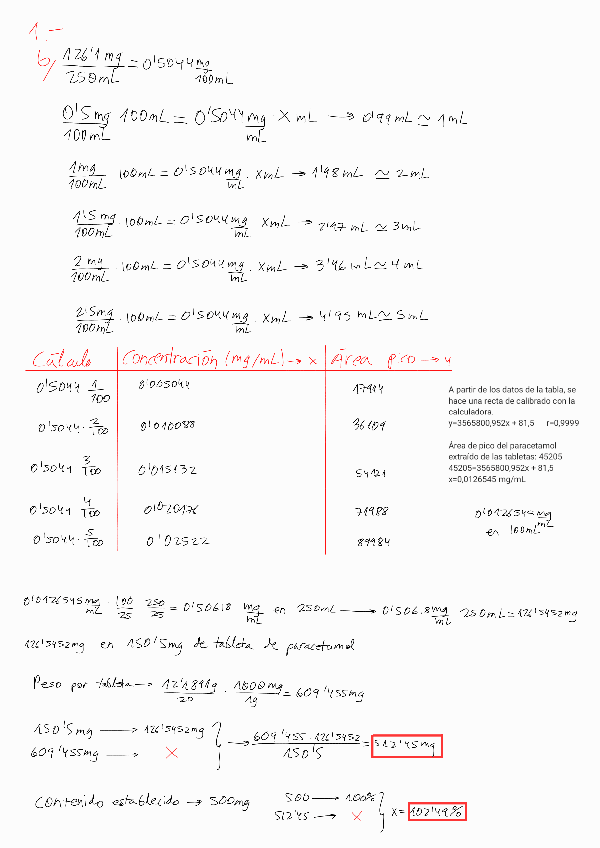 1.-
b) 126'1 mg / 250mL = 0'5044 mg / 100mL
0'5mg / 100mL 100mL = 0'5044 mg / mL X mL → 0'99mL ≃ 1mL
1mg / 100mL · 100mL = 0'5044 mg / mL · XmL → 1'98mL ≃ 2mL
1'5mg / 100mL · 100mL = 0'5044 mg / mL XmL → 2'97mL ≃ 3mL
2mg / 100mL · 100mL = 0'5044 mg / mL · XmL → 3'96mL ≃ 4mL
2'5mg / 100mL · 100mL = 0'5044 mg / mL · XmL → 4'95 mL ≃ 5mL
Cálculo Concentración (mg/mL) → x Área pco → y
0'5044 1/100 0'005044 17944
0'5044 · 2/100 0'010088 36109
0'5044 3/100 0'015132 54121
0'5044 4/100 0'020176 71988
0'5044 · 5/100 0'02522 89984
A partir de los datos de la tabla, se
hace una recta de calibrado con la
calculadora.
y=3565800,952x + 81,5 r=0,9999
Área de pico del paracetamol
extraído de las tabletas: 45205
45205=3565800,952x + 81,5
x=0,0126545 mg/mL
0'0126545 mg / mL
en 100mL
0'0126545 mg / mL · 100/25 250/25 = 0'50618 mg / mL en 250mL → 0'50618 mg / mL 250mL = 126'5452mg
126'5452mg en 150'5mg de tableta de paracetamol
Peso por tableta → 12'1891g / 20 · 1000mg / 1g = 609'455mg
150'5mg → 126'5452mg
609'455mg → X
→ 609'455 · 126'5452 / 150'5 = 512'45mg
Contenido establecido → 500mg 500 → 100%
512'45 → X
X = 102'49%